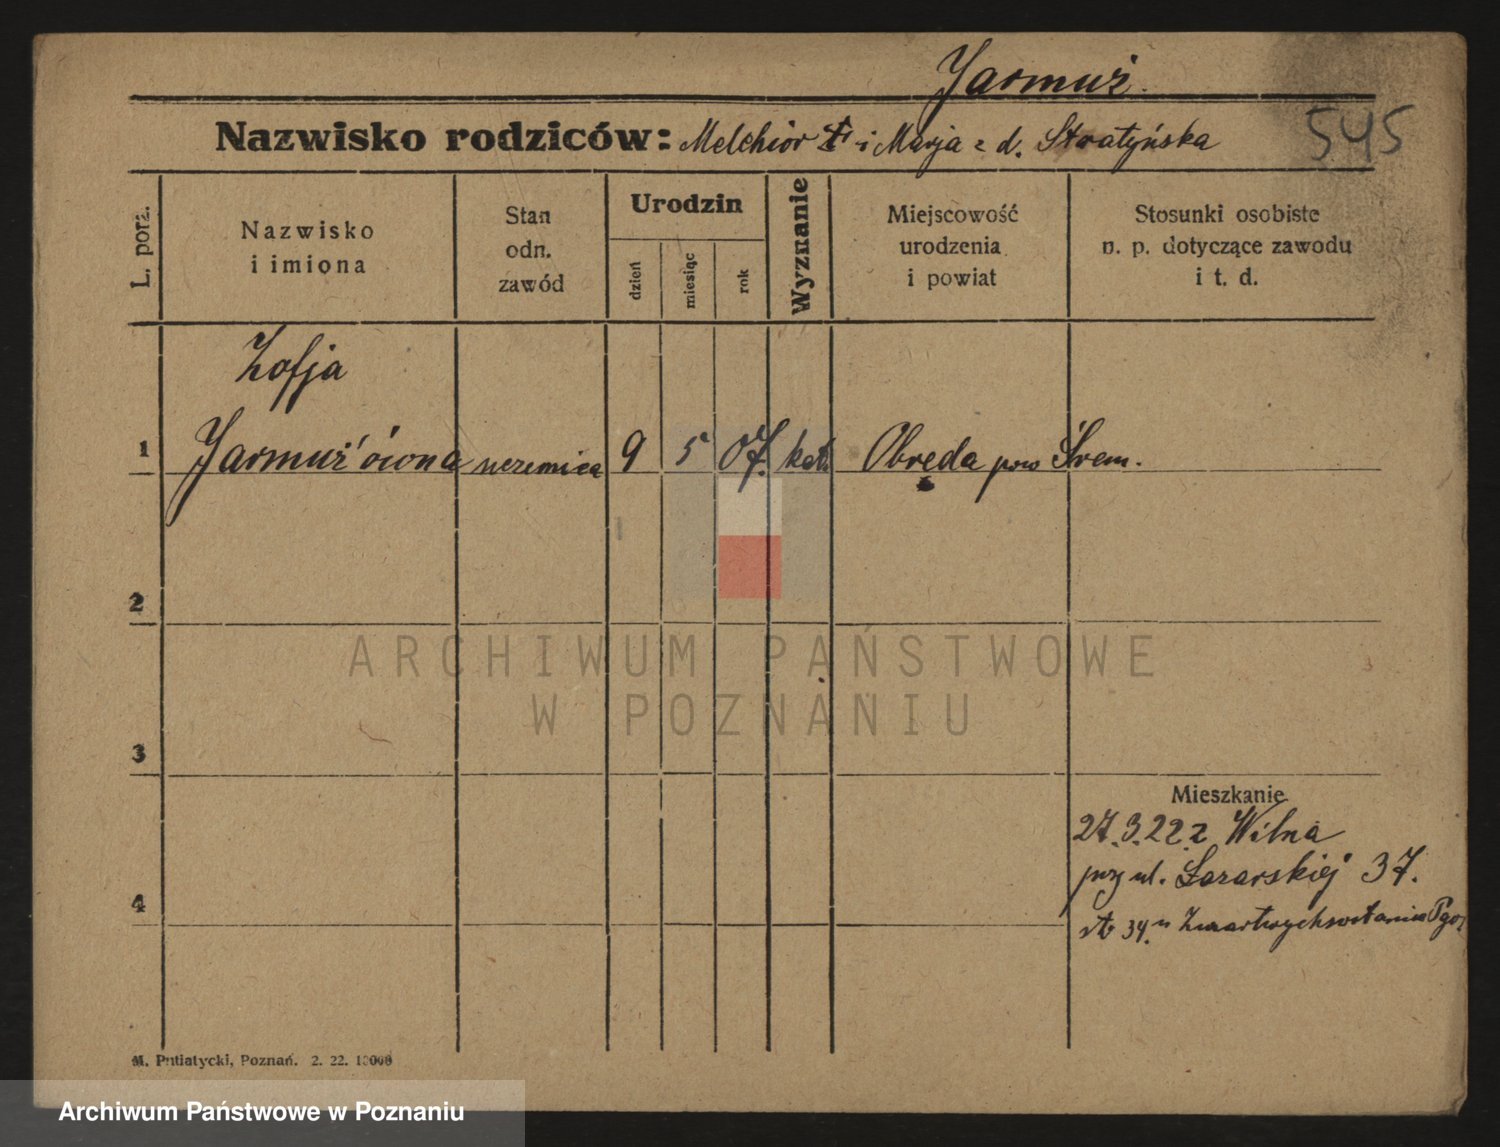 Jarmuż.
Nazwisko rodziców: Melchior i Marja z d. Stratyńska
545
L. porz.
Nazwisko
i imiona
Stan
odn.
zawód
Urodzin
dzień
miesiąc
rok
Wyznanie
Miejscowość
urodzenia
i powiat
Stosunki osobiste
n. p. dotyczące zawodu
i t. d.
Zofja
1 Jarmuż'ówna uczenica 9 5 07. kat. Obręda pow Śrem.
2
ARCHIWUM PAŃSTWOWE
W POZNANIU
3
Mieszkanie
27.3.22 z Wilna
przy ul. Łazarskiej 37.
4
34 u Zmartwychwstania
M. Putiatycki, Poznań. 2. 22. 10000
Archiwum Państwowe w Poznaniu